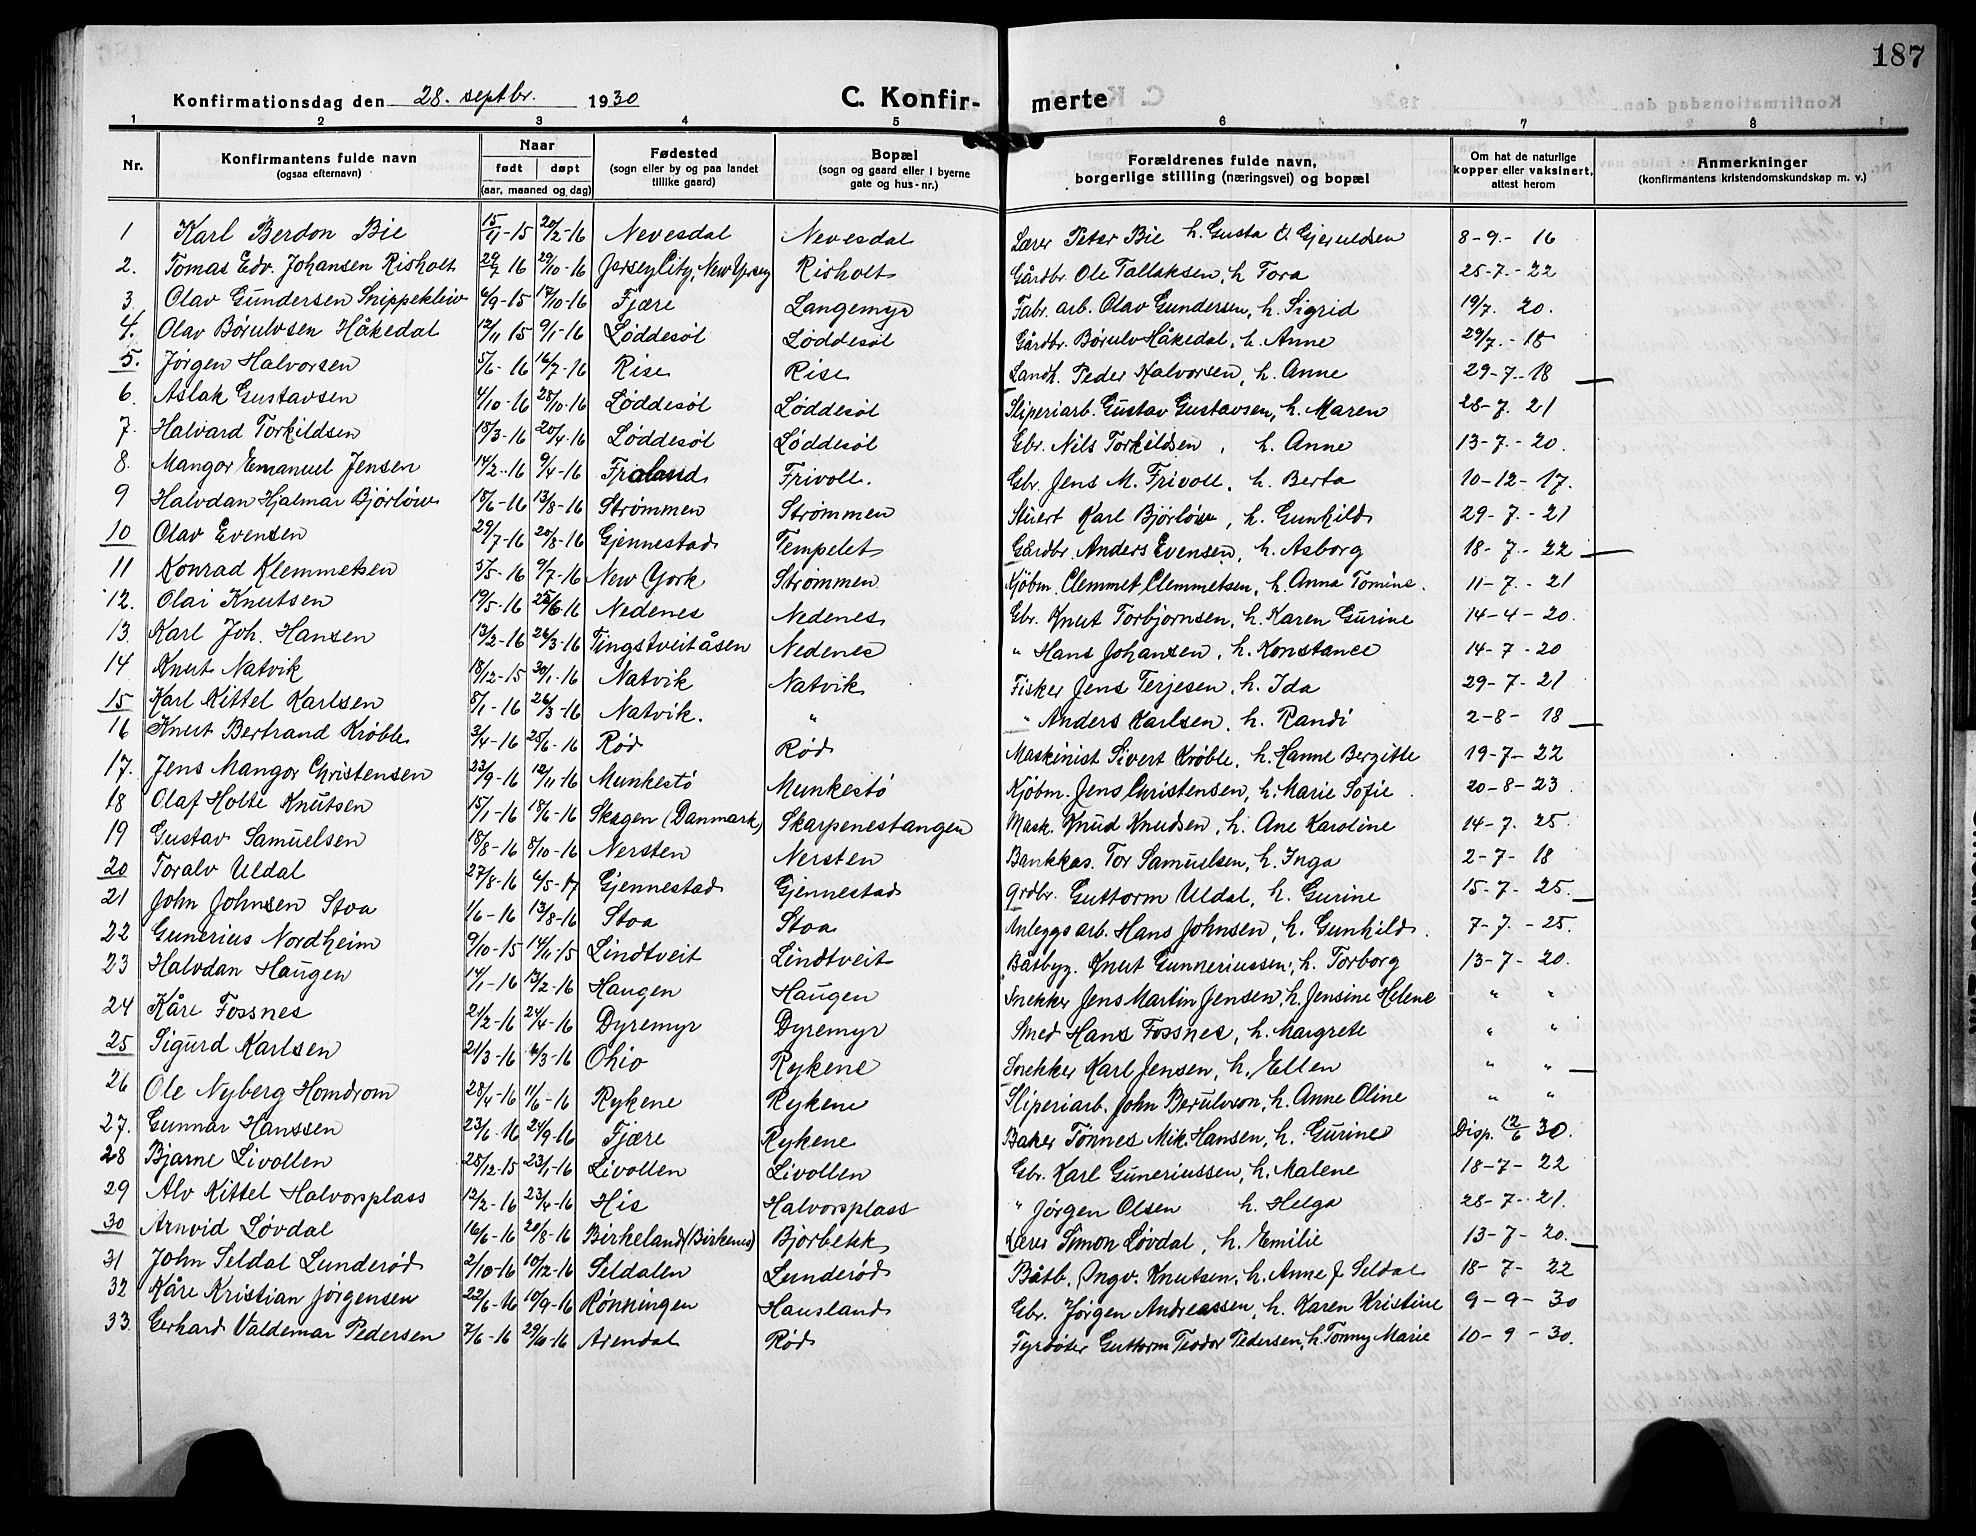 187
Konfirmationsdag den 28. septbr. 1930 C. Konfirmerte
1 2 3 4 5 6 7 8
Nr. Konfirmantens fulde navn (ogsaa efternavn) Naar født døpt (aar, maaned og dag) Fødested (sogn eller by og paa landet tillike gaard) Bopæl (sogn og gaard eller i byerne gate og hus-nr.) Forældrenes fulde navn, borgerlige stilling (næringsvei) og bopæl Om hat de naturlige kopper eller vaksinert, attest herom Anmerkninger (konfirmantens kristendomskundskap m. v.)
1 Karl Berdon Bie 15/11-15 20/2-16 Nevesdal Nevesdal Lærer Peter Bie h. Gusta O. Gjeruldsen 8-9.-16
2. Tomas Edv. Johansen Risholt 29/7 16 29/10-16 Jersey City, New Yersey Risholt Gårdbr. Ole Tallaksen, h Tora 25-7.-22
3. Olav Gundersen Snippekleiv 6/9-15 17/10-16 Fjære Langemyr Fabr. arb. Olav Gundersen, h. Sigrid 19/7. 20.
4. Olav Børulvsen Håkedal 12/11 15 9/1-16 Løddesøl Løddesøl Gårdbr. Børulv Håkedal, h. Anne 29/7.-18
5. Jørgen Halvorsen 5/6-16 16/7-16 Rise Rise Landh. Peder Halvorsen, h. Anne 29-7.-18
6. Aslak Gustavsen 4/10-16 28/10-16 Løddesøl Løddesøl Sliperiarb. Gustav Gustavsen, h. Maren 28-7. 21
7. Halvard Torkildsen 18/3-16 20/4-16 Løddesøl Løddesøl Gbr. Nils Torkildsen, h. Anne 13-7.-20.
8. Mangor Emanuel Jensen 14/2-16 9/4-16 Froland Frivoll. Gbr. Jens M. Frivoll, h. Berta 10-12-17.
9 Halvdan Hjalmar Bjørløw 18/6-16 13/8-16 Strømmen Strømmen Stuert Karl Bjørløw, h. Gunhild 29-7.-21
10 Olav Evensen 29/7-16 20/8-16 Gjennestad Tempelet Gårdbr. Anders Evensen, h. Asborg 18-7.-22
11 Konrad Klemmetsen 5/5-16 9/7-16 New York Strømmen Kjøbm. Clemmet Clemmetsen, h. Anna Tomine. 11-7.-21
12. Olai Knutsen 19/5-16 25/6-16 Nedenes Nedenes Gbr. Knut Torbjørnsen, h. Karen Gurine 14-4-20.
13. Karl Joh. Hansen 13/2-16 26/3-16 Tingstveitåsen Nedenes " Hans Johansen, h. Konstance 14-7-20
14 Knut Natvik 18/12-15 30/1-16 Natvik Natvik Fisker Jens Terjesen, h. Ida 29-7.-21
15 Karl Kittel Karlsen 8/1-16 26/3-16 Natvik. " " Anders Karlsen, h. Randi 2-8-18
16 Knut Bertrand Krøble 3/4-16 25/6-16 Rød Rød Maskinist Sivert Krøble, h. Hanne Bergitte 19-7-22
17. Jens Mangor Christensen 23/9-16 12/11-16 Munkestø Munkestø Kjøbm. Jens Christensen, h. Marie Sofie 20-8-23
18 Olaf Holte Knutsen 15/1-16 18/6-16 Skagen (Danmark) Skarpenestangen Mask. Knud Knudsen, h. Ane Karoline 14-7. 25.
19 Gustav Samuelsen 18/8-16 8/10-16 Nersten Nersten Bankkas. Tor Samuelsen, h. Inga 2-7-18
20 Toralv Uldal 27/8-16 6/5-17 Gjennestad Gjennestad Grdbr. Guttorm Uldal, h. Gurine 15-7-25.
21 John Johnsen Stoa 1/6-16 13/8-16 Stoa Stoa Anleggsarb. Hans Johnsen, h. Gunhild. 7-7.-25.
22 Gunerius Nordheim 9/10-15 14/11-15 Lindtveit Lindtveit Båtbyg. Knut Gunneriussen, h. Torborg 13-7-20.
23 Halvdan Haugen 14/1-16 13/2-16 Haugen Haugen Snekker Jens Martin Jensen, h. Jensine Helene " "
24 Kåre Fossnes 21/2-16 24/4-16 Dyremyr Dyremyr Smed Hans Fossnes, h. Margrete " "
25 Sigurd Karlsen 21/3-16 Ohio Rykene Snekker Karl Jensen, h. Ellen " "
26 Ole Nyberg Homdrom 28/4-16 11/6-16 Rykene Rykene Sliperiarb. John Berulvson, h. Anne Oline " "
27. Gunnar Hanssen 23/6-16 24/9-16 Fjære Rykene Baker Tønnes Mik. Hansen, h. Gurine Disp. 12/6 30.
28 Bjarne Livollen 28/12-15 23/1-16 Livollen Livollen Gbr. Karl Guneriussen, h. Malene 18-7-22
29 Alv Kittel Halvorsplass 12/2-16 23/4-16 His Halvorsplass " Jørgen Olsen h. Helga 28-7-21.
30 Arnvid Løvdal 16/6-16 20/8-16 Birkeland (Birkenes) Bjorbekk Lærer Simon Løvdal, h. Emilie 13-7-20.
31 John Seldal Lunderød 2/10-16 10/12-16 Seldalen Lunderød Båtb. Ingv. Knutsen, h. Anne J. Seldal 18-7-22
32 Kåre Kristian Jørgensen 22/6-16 10/9-16 Rønningen Hausland Gbr. Jørgen Andreassen, h. Karen Kristine 9-9-30
33. Gerhard Valdemar Pedersen 7/6-16 Arendal Rød Fyrbøter Guttorm Teodor Pedersen, h. Tonny Marie 10-9-30.